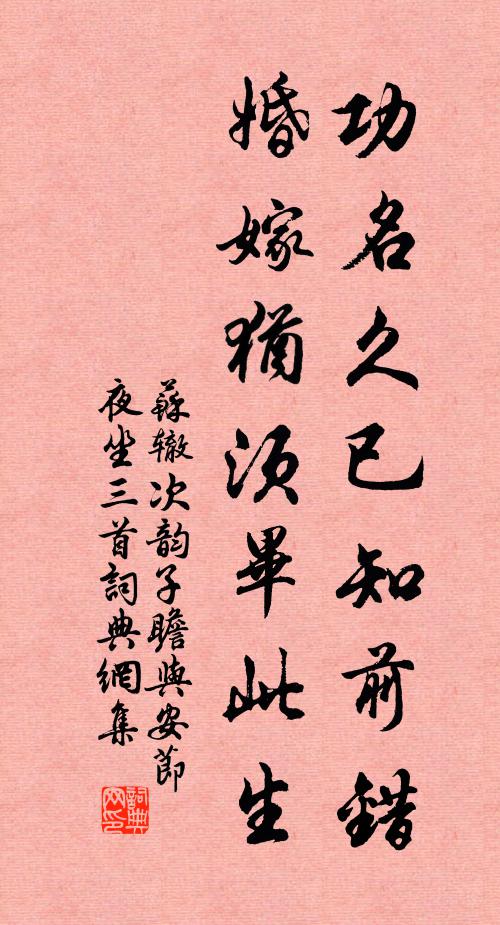 功名久已知前錯
婚嫁猶須畢此生
蘇轍次韵子瞻與安節
夜坐三首詞典網集
詞典
网印